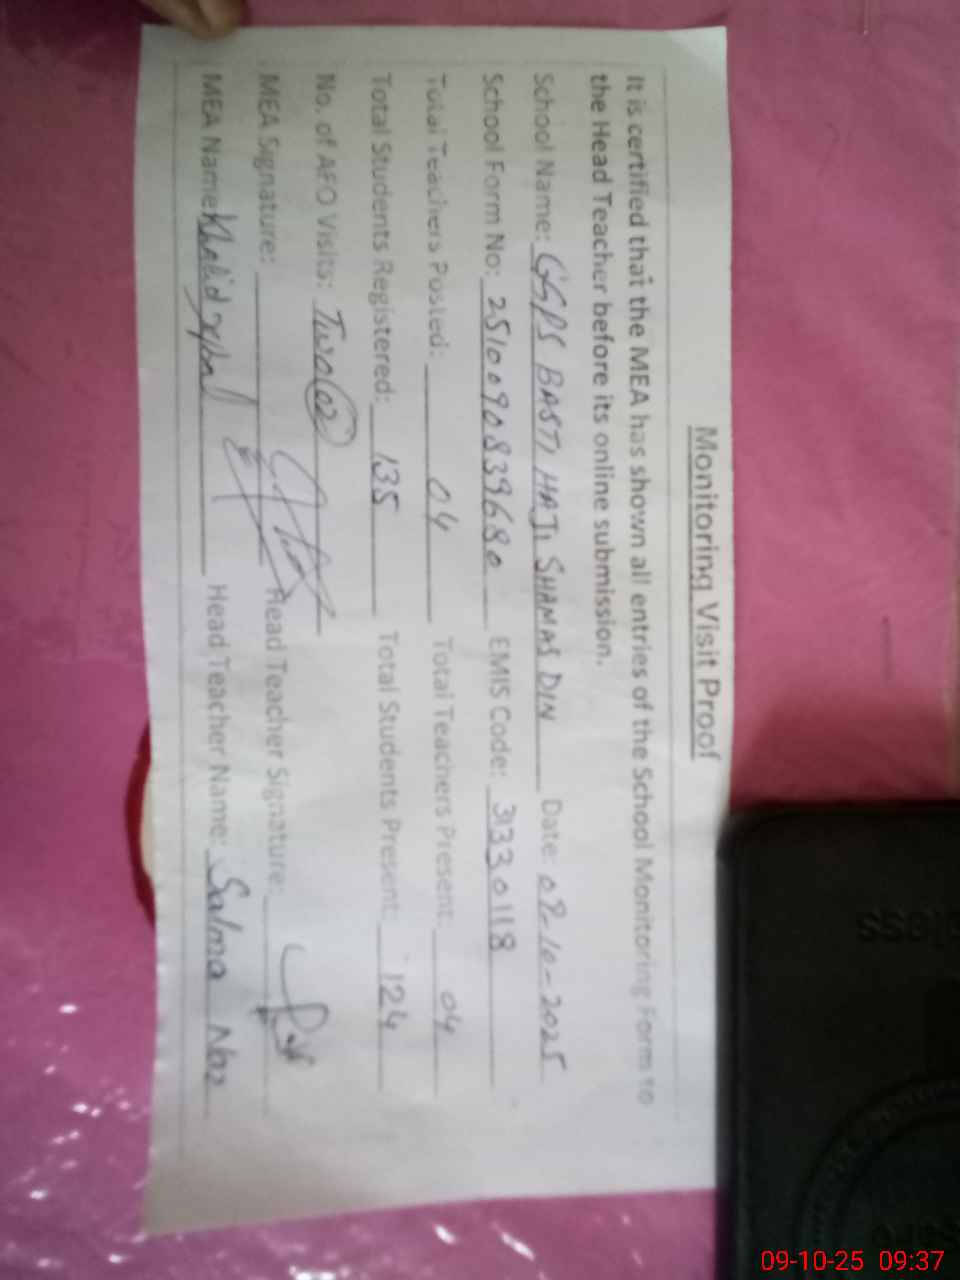 Monitoring Visit Proof
It is certified that the MEA has shown all entries of the School Monitoring Form to
the Head Teacher before its online submission.
School Name: GGPS BASTI HAJI SHAMAS DIN Date: 09-10-2025
School Form No: 2510090839680 EMIS Code: 31330118
Total Teachers Posted: 04 Total Teachers Present: 04
Total Students Registered: 135 Total Students Present: 124
No. of AEO Visits: Two (02)
MEA Signature: Head Teacher Signature:
MEA Name: Khalid Iqbal Head Teacher Name: Salma Naz
09-10-25 09:37